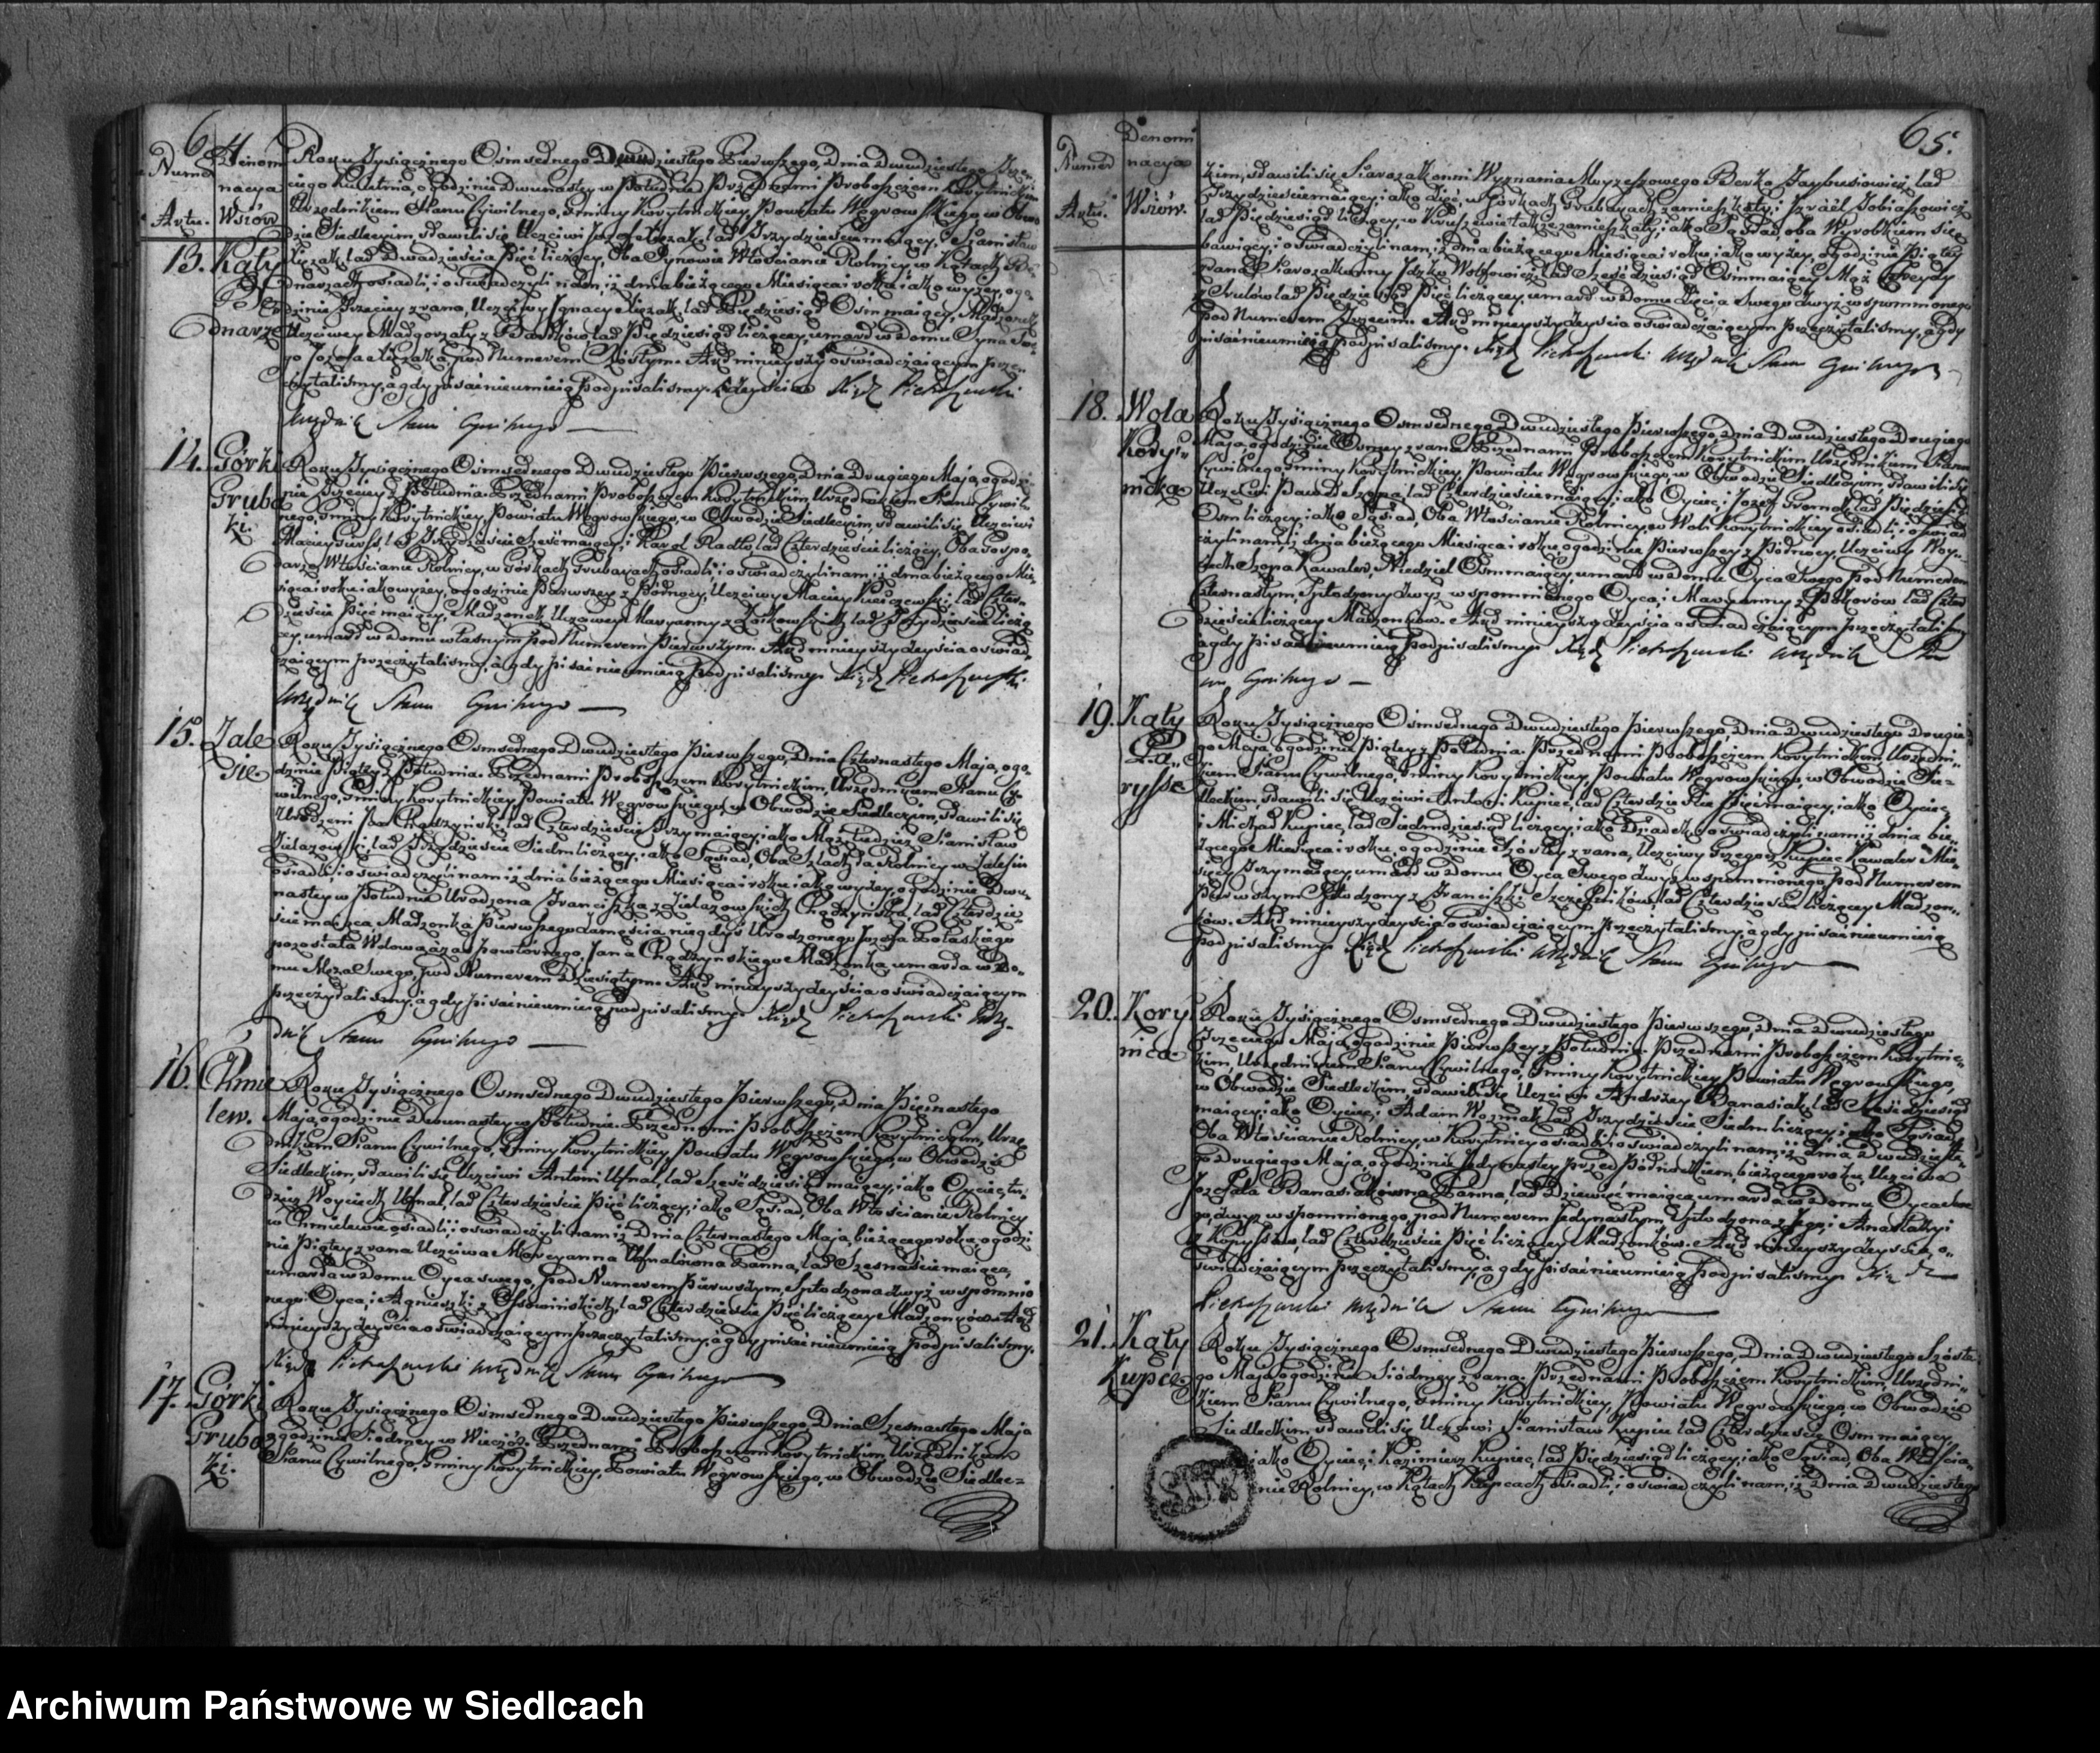 64
Numer Denomi
nacya
Artu. Wsiów
13. Kąty Be
dnarze
Roku Tysiącznego Ośmsetnego Dwudziestego Pierwszego, Dnia Dwudziestego Trze-
ciego Kwietnia, o godzinie Dwunastey w Południe Przed nami Proboszczem Korytnickim
Urzędnikiem Stanu Cywilnego, Gminy Korytnickiey, Powiatu Węgrowskiego w Obwo-
dzie Siedleckim, stawili się Uczciwi Józef lat Trzydzieści maiący, i Stanisław
lat Dwadzieścia Pięć liczący, Oba Synowie Włościanie Rolnicy, w Kątach Be-
dnarzach osiadli; i oświadczyli nam, iż dnia bieżącego Miesiąca i roku iako wyżey, o go-
dzinie Trzeciey z rana, Uczciwy Ignacy lat Pięćdziesiąt Ośm maiący, Małżonek
Uczciwey Małgorzaty z lat Pięćdziesiąt liczącey, umarł w Domu Syna Swe-
go Józefa pod Numerem Szóstym. Akt ninieyszy oświadczaiącym prze-
czytaliśmy, a gdy pisać nieumieią podpisaliśmy. Zeyścia Xiądz Pietraszewski
Urzędnik Stanu Cywilnego
14. Górki
Gruba
ki.
Roku Tysiącznego Ośmsetnego Dwudziestego Pierwszego, Dnia Drugiego Maja, o godzi-
nie Trzeciey z Południa. Przed nami Proboszczem Korytnickim, Urzędnikiem Stanu Cywil-
nego, Gminy Korytnickiey, Powiatu Węgrowskiego, w Obwodzie Siedleckim, stawili się Uczciwi
Maciey lat Trzydzieście Sześć maiący, i Karol Radło, lat Czterdzieście liczący, Oba Gospo-
darze Włościanie Rolnicy, w Górkach Grubakach osiadli; i oświadczyli nam, iż dnia bieżącego Mie-
siąca i roku iako wyżey, o godzinie Pierwszey z Północy, Uczciwy Maciey lat Czter-
dzieście Pięć maiący, Małżonek Uczciwey Maryanny z lat Trzydzieście liczą-
cey, umarł w Domu własnym pod Numerem Pierwszym. Akt ninieyszy Zeyścia oświad-
czaiącym przeczytaliśmy, a gdy pisać nieumieią podpisaliśmy. Xiądz Pietraszewski
Urzędnik Stanu Cywilnego
15. Zale
sie
Roku Tysiącznego Ośmsetnego Dwudziestego Pierwszego, Dnia Czternastego Maja, o go-
dzinie Piątey z Południa. Przed nami Proboszczem Korytnickim, Urzędnikiem Stanu Cy-
wilnego, Gminy Korytnickiey, Powiatu Węgrowskiego, w Obwodzie Siedleckim, stawili się
Urodzeni Jan Chądzyński, lat Czterdzieście Trzy maiący, iako Mąż, tudzież Stanisław
Zielazowski, lat Trzydzieście Siedm liczący, iako Sąsiad, Oba Szlachta Rolnicy w Zalesiu
osiadli; i oświadczyli nam iż dnia bieżącego Miesiąca i roku iako wyżey, o godzinie Dwu-
nastey w Południe Urodzona Franciszka z Zielazowskich Chądzyńska, lat Czterdzie-
ście maiąca, Małżonka Pierwszego zamęścia niegdyś Urodzonego Józefa
pozostała Wdowa, a zaś powtórnego, Jana Chądzyńskiego Małżonka, umarła w Do-
mu Męża Swego, pod Numerem Dziesiątym. Akt ninieyszy Zeyścia oświadczaiącym
przeczytaliśmy, a gdy pisać nieumieią podpisaliśmy. Xiądz Pietraszewski Urzę-
dnik Stanu Cywilnego
16. Chmie
lew.
Roku Tysiącznego Ośmsetnego Dwudziestego Pierwszego, Dnia Piętnastego
Maja, o godzinie Dwunastey w Południe. Przed nami Proboszczem Korytnickim, Urzę-
dnikiem Stanu Cywilnego, Gminy Korytnickiey, Powiatu Węgrowskiego, w Obwodzie
Siedleckim, stawili się Uczciwi Antoni Ufnal, lat Sześćdziesiąt maiący, iako Oyciec, tu-
dzież Woyciech Ufnal, lat Czterdzieście Pięć liczący, iako Sąsiad, Oba Włościanie Rolnicy
w Chmielewie osiadli; i oświadczyli nam iż Dnia Czternastego Maja, bieżącego roku, o godzi-
nie Piątey z rana Uczciwa Maryanna Ufnalówna Panna, lat Szesnaście maiąca,
umarła w Domu Oyca swego, pod Numerem Pierwszym, Spłodzona z wyż wspomnio-
nego Oyca, i Agnieszki z lat Czterdzieście Pięć liczącey Małżonków. Akt
ninieyszy Zeyścia oświadczaiącym przeczytaliśmy, a gdy pisać nieumieią podpisaliśmy.
Xiądz Pietraszewski Urzędnik Stanu Cywilnego
17. Górki
Gruba
ki.
Roku Tysiącznego Ośmsetnego Dwudziestego Pierwszego, Dnia Szesnastego Maja
o godzinie Siódmey w Wieczór. Przed nami Proboszczem Korytnickim, Urzędnikiem
Stanu Cywilnego, Gminy Korytnickiey, Powiatu Węgrowskiego, w Obwodzie Siedlec-
65.
Numer Denomi
nacya
Artu. Wsiów.
kim, stawili się Starozakonni Wyznania Moyżeszowego Berko lat
Trzydzieście maiący, iako Zięć, w Górkach Grubakach zamieszkały, i Izrael Tobiaszowicz
lat Pięćdziesiąt liczący, w także zamieszkały, iako Sąsiad, oba Wyrobkiem się
bawiący, i oświadczyli nam, iż dnia bieżącego Miesiąca i roku iako wyżey, o godzinie Piątey
z rana Starozakonny Jcko Wolfowicz, lat Sześćdziesiąt Ośm maiący Mąż
z Srulów lat Pięćdziesiąt Pięć liczącey, umarł w Domu Zięcia Swego z wyż wspomnionego
pod Numerem Trzecim. Akt ninieyszy Zeyścia oświadczaiącym przeczytaliśmy, a gdy
pisać nieumieią podpisaliśmy. Xiądz Pietraszewski Urzędnik Stanu Cywilnego
18. Wola
Kory-
nicka
Roku Tysiącznego Ośmsetnego Dwudziestego Pierwszego, Dnia Dwudziestego Drugiego
Maja, o godzinie Ósmey z rana. Przed nami Proboszczem Korytnickim Urzędnikiem Stanu
Cywilnego, Gminy Korytnickiey, Powiatu Węgrowskiego, w Obwodzie Siedleckim, stawili się
Uczciwi Paweł Szopa, lat Czterdzieście maiący, iako Oyciec, i Józef Gromek, lat Pięćdziesiąt
Ośm liczący, iako Sąsiad, Oba Włościanie Rolnicy, w Woli Korytnickiey osiadli; i oświad-
czyli nam, iż dnia bieżącego Miesiąca i roku, o godzinie Pierwszey z Północy, Uczciwy Woy-
ciech Szopa Kawaler, Niedziel Ośm maiący, umarł w Domu Oyca Swego pod Numerem
Czternastym, Spłodzony z wyż wspomnionego Oyca, i Maryanny z lat Czter-
dzieście liczącey Małżonków. Akt ninieyszy Zeyścia oświadczaiącym przeczytaliśmy
a gdy pisać nieumieią podpisaliśmy. Xiądz Pietraszewski Urzędnik Sta
nu Cywilnego
19. Kąty
Pa-
rysse
Roku Tysiącznego Ośmsetnego Dwudziestego Pierwszego, Dnia Dwudziestego Drugie-
go Maja, o godzinie Piątey z Południa. Przed nami Proboszczem Korytnickim, Urzędni-
kiem Stanu Cywilnego, Gminy Korytnickiey, Powiatu Węgrowskiego, w Obwodzie Sie-
dleckim, stawili się Uczciwi Antoni Kupiec, lat Czterdzieście Pięć maiący, iako Oyciec,
i Michał Kupiec, lat Siedmdziesiąt liczący, iako Dziadek, i oświadczyli nam, iż dnia bie-
żącego Miesiąca i roku, o godzinie Szóstey z rana, Uczciwy Grzegorz Kupiec Kawaler Mie-
sięcy Trzy maiący, umarł w Domu Oyca Swego z wyż wspomnionego pod Numerem
Pierwszym, Spłodzony z Franciszki lat Czterdzieście liczącey Małżon-
ków. Akt ninieyszy Zeyścia oświadczaiącym przeczytaliśmy, a gdy pisać nieumieią
podpisaliśmy. Xiądz Pietraszewski Urzędnik Stanu Cywilnego
20. Koryt
nica.
Roku Tysiącznego Ośmsetnego Dwudziestego Pierwszego, Dnia Dwudziestego
Trzeciego Maja, o godzinie Pierwszey z Południa. Przed nami Proboszczem Korytnic-
kim, Urzędnikiem Stanu Cywilnego, Gminy Korytnickiey Powiatu Węgrowskiego,
w Obwodzie Siedleckim, stawili się Uczciwi Andrzey Banasiak, lat Sześćdziesiąt
maiący, iako Oyciec, i Adam Woźniak, lat Trzydzieście Siedm liczący, iako Sąsiad,
Oba Włościanie Rolnicy, w Korytnicy osiadli, i oświadczyli nam, iż dnia Dwudzieste-
go Drugiego Maja, o godzinie Jedynastey przed Północkiem, bieżącego roku, Uczciwa
Józefata Banasiakówna Panna, lat Dziewięć maiąca, umarła w Domu Oyca Swe-
go, z wyż wspomnionego, pod Numerem Jedynastym, Spłodzona z Jego, i Anastazyi
z lat Czterdzieście Pięć liczącey Małżonków. Akt ninieyszy Zeyścia, o-
świadczaiącym przeczytaliśmy, a gdy pisać nieumieią podpisaliśmy. Xiądz
Pietraszewski Urzędnik Stanu Cywilnego
21. Kąty
Kupce.
Roku Tysiącznego Ośmsetnego Dwudziestego Pierwszego, Dnia Dwudziestego Szóste-
go Maja, o godzinie Siódmey z rana. Przed nami Proboszczem Korytnickim, Urzędni-
kiem Stanu Cywilnego, Gminy Korytnickiey, Powiatu Węgrowskiego, w Obwodzie
Siedleckim, stawili się Uczciwi Stanisław Kupiec lat Czterdzieście Ośm maiący,
iako Oyciec, i Kazimierz Kupiec, lat Pięćdziesiąt liczący, iako Sąsiad, Oba Włościa-
nie Rolnicy, w Kątach Kupcach osiadli; i oświadczyli nam, iż Dnia Dwudziestego
Archiwum Państwowe w Siedlcach